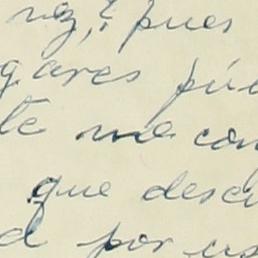 pues
gares pú
te me con
que desc
d por us